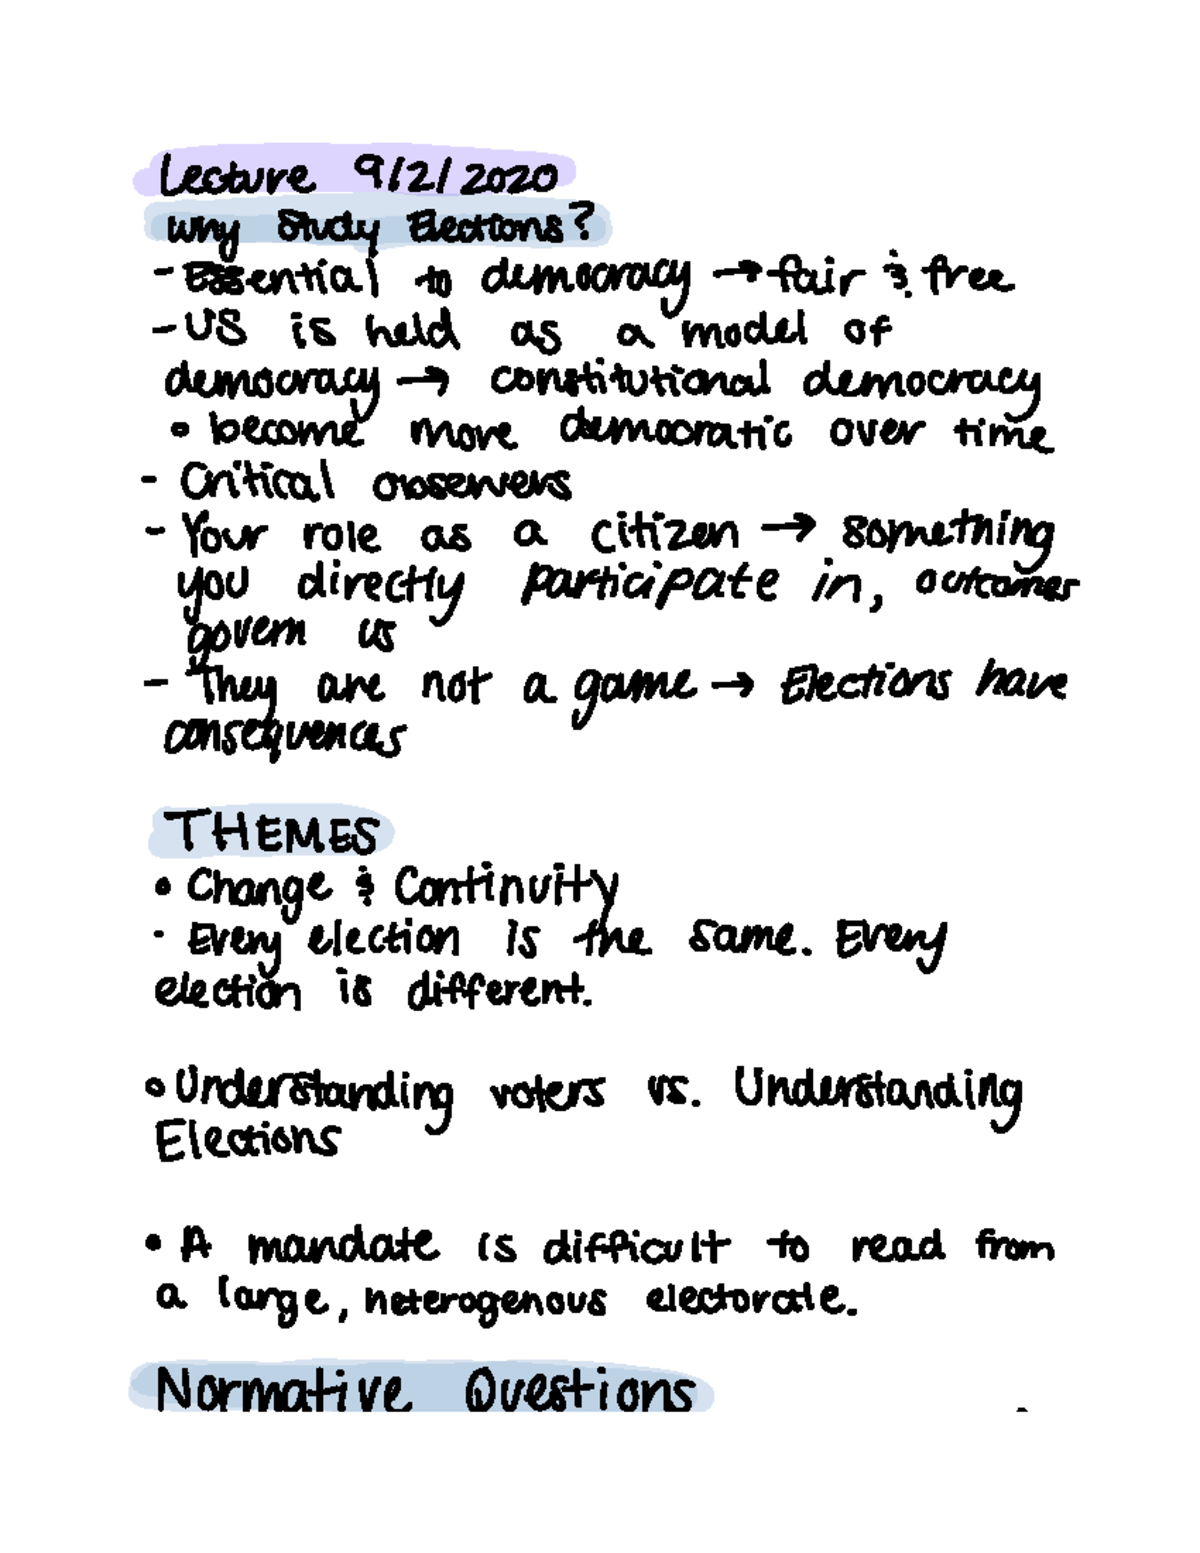 Lecture 9/2/2020
Why Study Elections?
- Essential to democracy → fair & free
- US is held as a model of
democracy → constitutional democracy
• become more democratic over time
- Critical observers
- Your role as a citizen → something
you directly participate in, outcomes
govern us
- They are not a game → Elections have
consequences
THEMES
• Change & Continuity
- Every election is the same. Every
election is different.
• Understanding voters vs. Understanding
Elections
• A mandate is difficult to read from
a large, heterogenous electorate.
Normative Questions